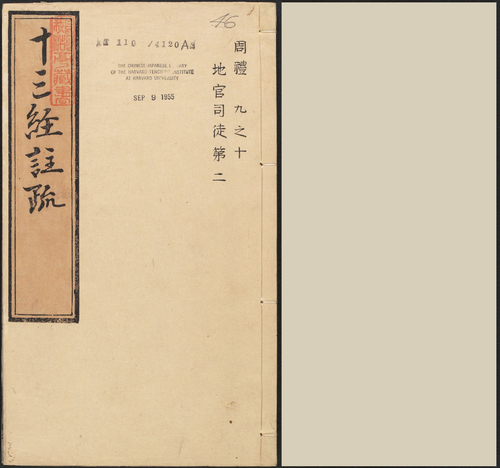 46
周禮 九之十
地官司徒第二
110 /4120A
THE CHINESE-JAPANESE LIBRARY
OF THE HARVARD-YENCHING INSTITUTE
AT HARVARD UNIVERSITY
SEP 9 1955
十三經註疏